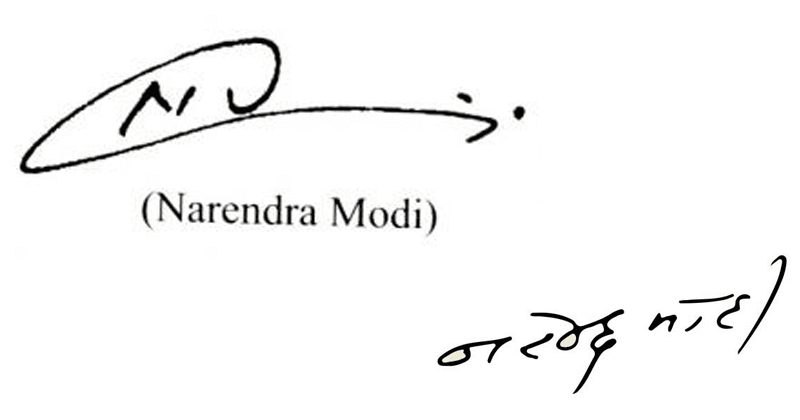 (Narendra Modi)
नरेन्द्र मोदी